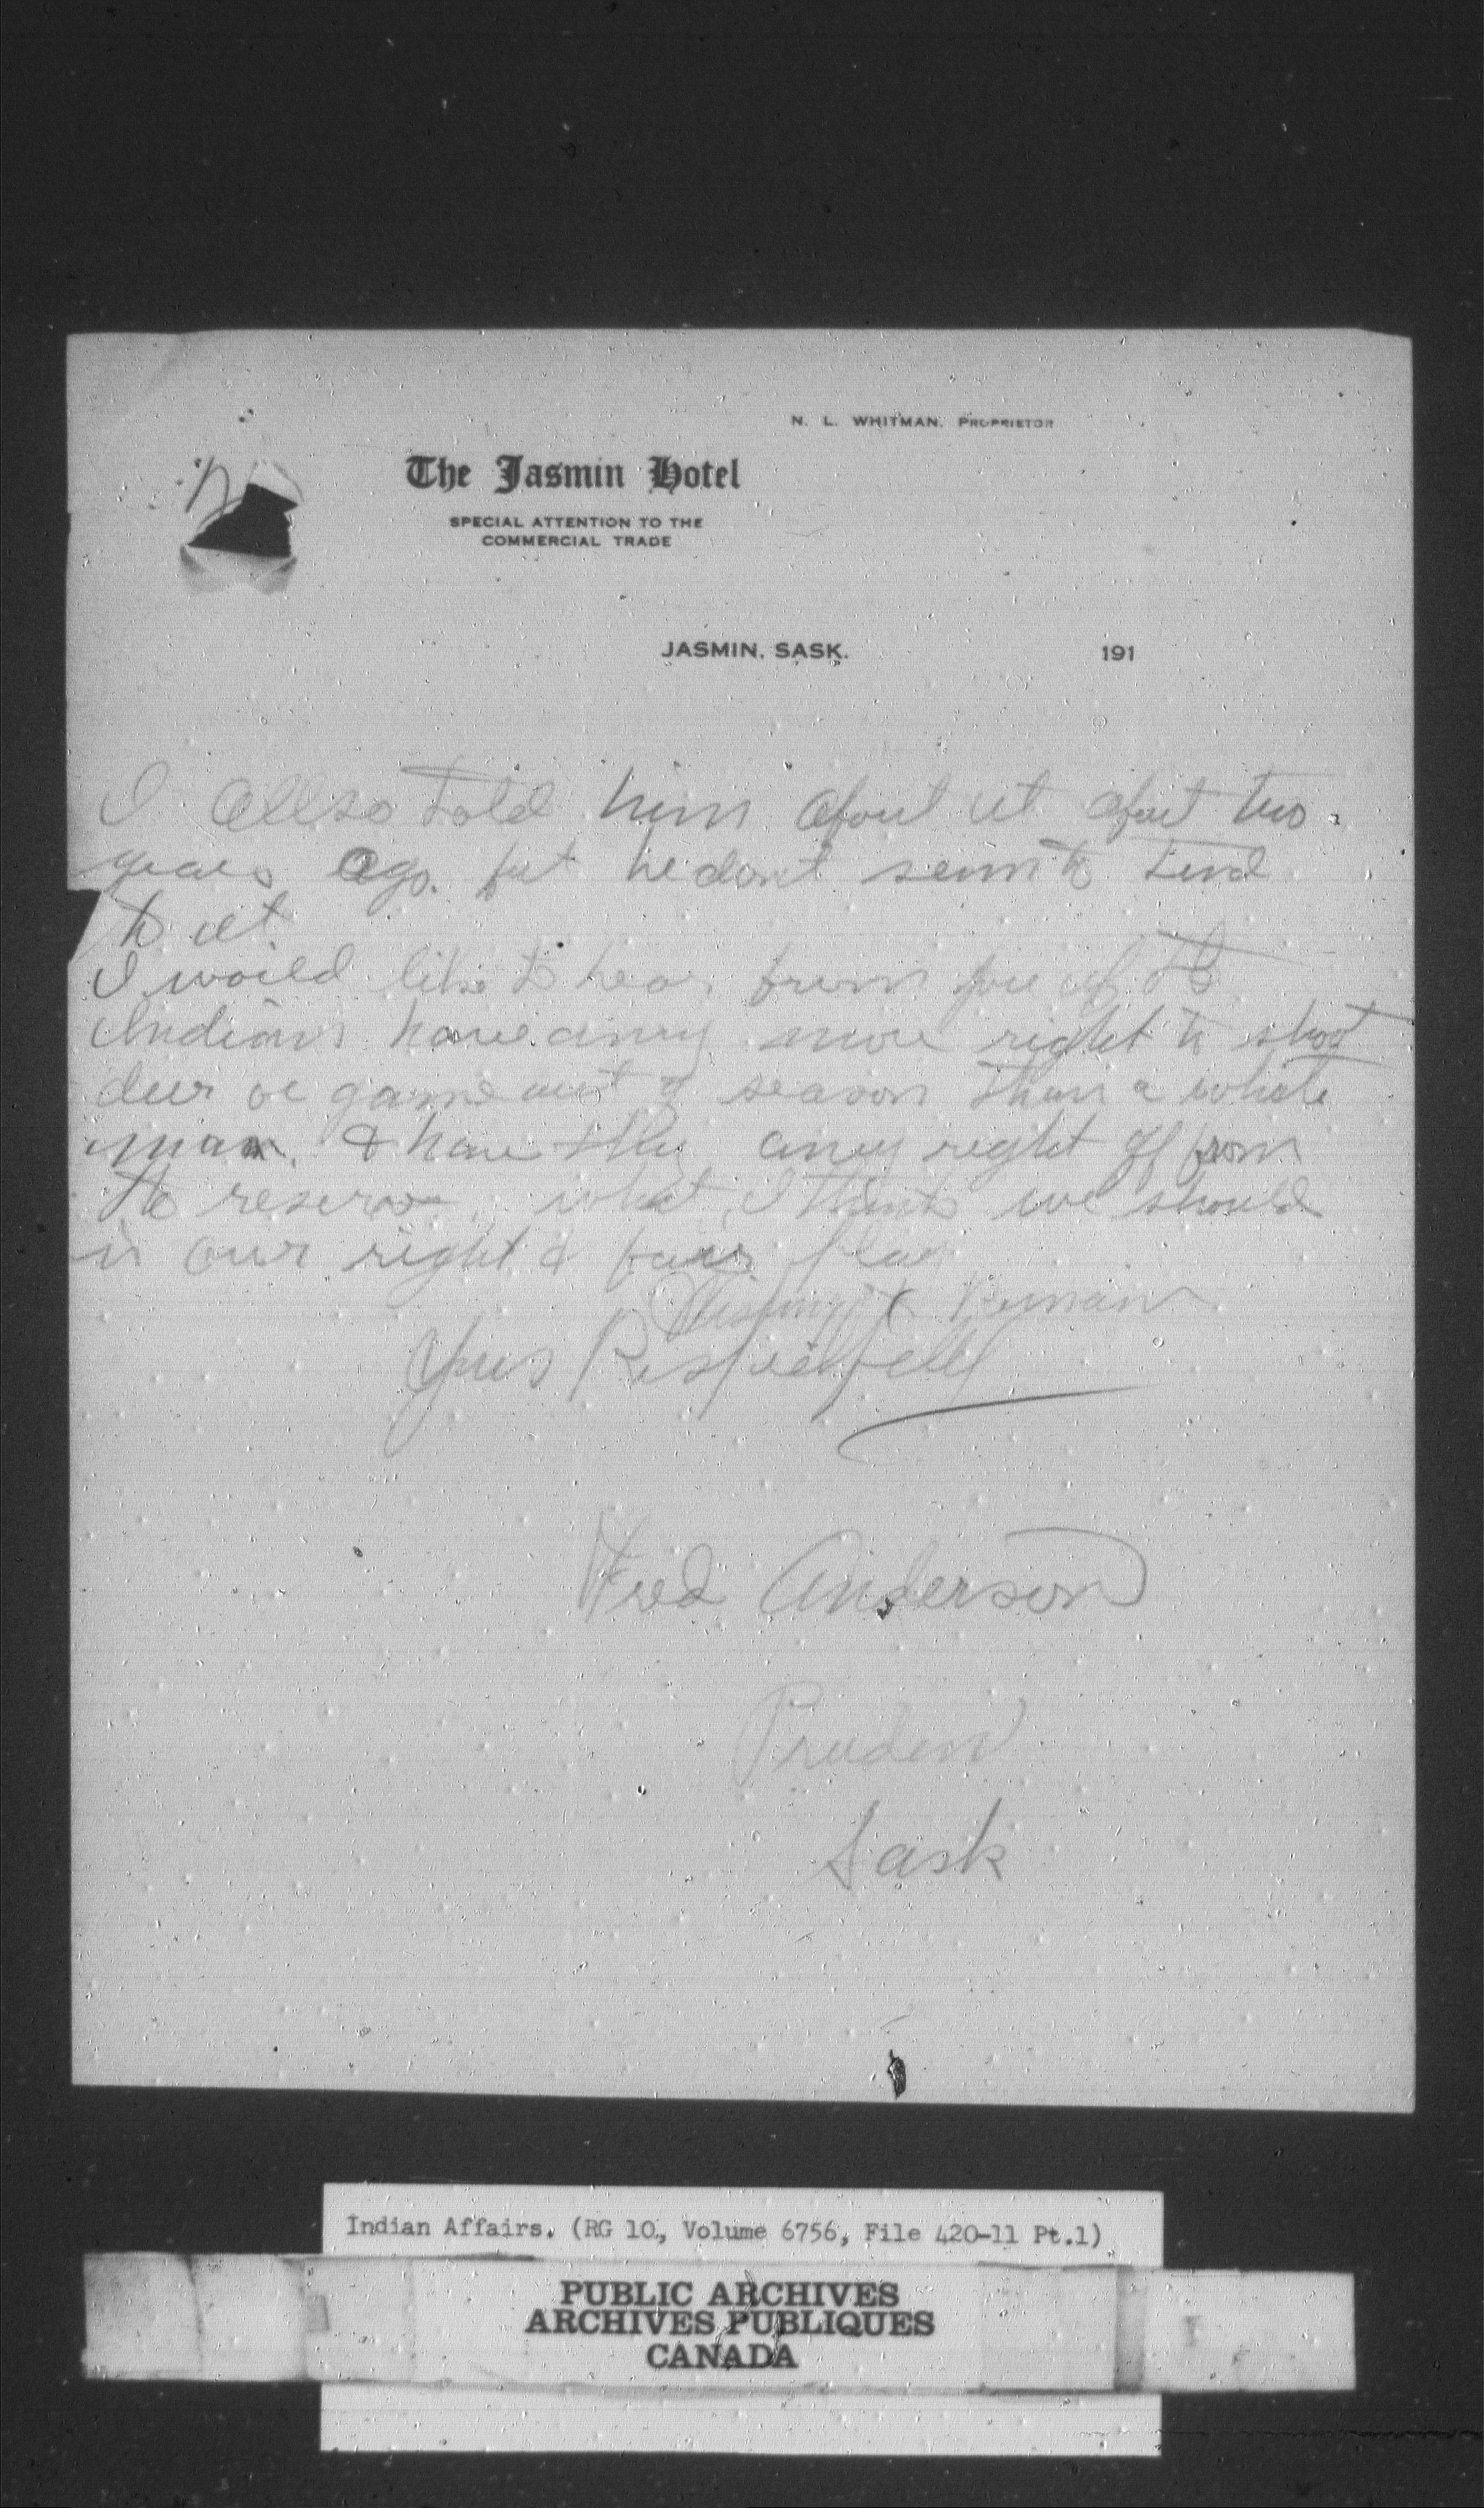 N. L. WHITMAN, PROPRIETOR
The Jasmin Hotel
SPECIAL ATTENTION TO THE
COMMERCIAL TRADE
JASMIN, SASK. 191
I allso told him about it about two
years ago. but he dont seem to tend
to it.
I would like to hear from you if the
Indians have anny more right to shoot
deer or game out of season than a white
man. & have they anny right off from
the reserve. what I think we should
is our right & fair play
Wishing to Remain
Yours Respectfully
Fred Anderson
Pruden
Sask
Indian Affairs. (RG 10, Volume 6756, File 420-11 Pt.1)
PUBLIC ARCHIVES
ARCHIVES PUBLIQUES
CANADA